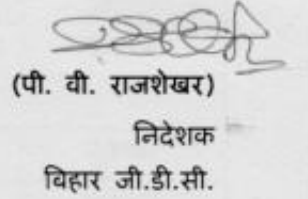 (पी. वी. राजशेखर)
निदेशक
विहार जी.डी.सी.